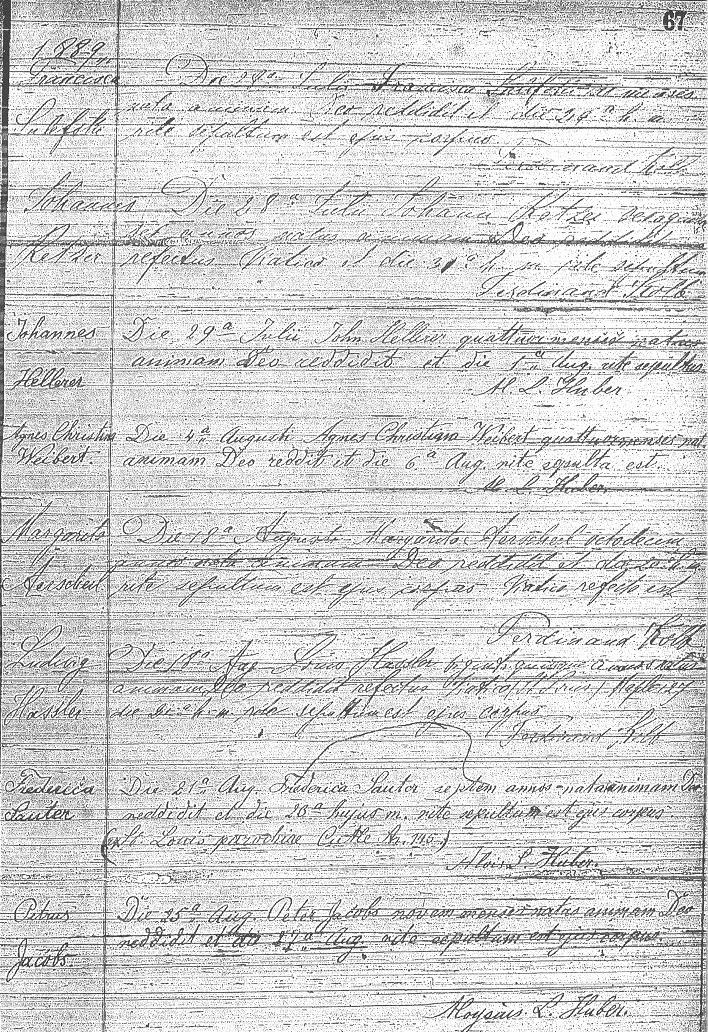 67
1889
Francisca Die 28a Julii Francisca
nata animam Deo reddidit et die 29a h. m.
rite sepultum est ejus corpus
Ferdinand Kolb
Johannes Die 28a Julii Johann Ketzer
annos natus animam Deo reddidit
Ketzer refectus Viatico et die 31a h. m. rite sepultum
Ferdinand Kolb
Johannes Die 29a Julii John Hellerer quattuor mensis natus
animam Deo reddidit et die 1a Aug. rite sepultus
Hellerer
M. L. Huber.
Agnes Christina Die 4a Augusti Agnes Christiana Weibert quattuor menses nat.
Weibert. animam Deo reddit et die 6a Aug. rite sepulta est.
M. L. Huber.
Margarita Die 18a Augusti Margarita octodecim
annos nata animam Deo reddidit et die
rite sepultum est ejus corpus Viatico refecta est
Ferdinand Kolb
Ludwig Die 18a Aug. Louis Hassler annos natus
animam Deo reddidit refectus Viatico
Hassler die h. m. rite sepultum est ejus corpus
Ferdinand Kolb
Frederica Die 21a Aug. Frederica Sauter septem annos nata animam Deo
Sauter reddidit et die 23a hujus m. rite sepultum est ejus corpus.
(St. Louis parochiae 145.)
Alois L. Huber.
Petrus Die 25a Aug. Peter Jacobs novem menses natus animam Deo
reddidit et die 27a Aug. rite sepultum est ejus corpus.
Jacobs
Aloysius L. Huber.